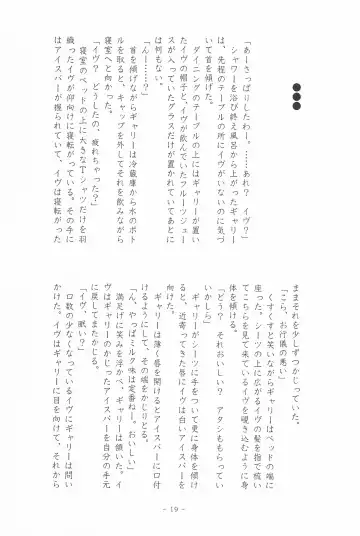 ●●●
「あーさっぱりしたわー。…あれ？　イヴ？」
シャワーを浴び終え風呂から上がったギャリー
は、先程のテーブルの所にイヴがいないのに気づ
いて首を傾げた。
ダイニングのテーブルの上にはギャリーが置い
たイヴの帽子と、イヴが飲んでいたフルーツジュー
スが入っていたグラスだけが置かれていてあと
は何もない。
「んー……？」
首を傾げながらギャリーは冷蔵庫から水のボト
ルを取ると、キャップを外してそれを飲みながら
寝室へと向かった。
「イヴ？　どうしたの、疲れちゃった？」
寝室のベッドの上に大きなTシャツだけを羽
織ったイヴが仰向けに寝転がっている。その手に
はアイスバーが握られていて、イヴは寝転がった
ままそれを少しずつかじっていた。
「こら、お行儀の悪い」
くすくすと笑いながらギャリーはベッドの端に
座った。シーツの上に広がるイヴの髪を指で梳い
てこちらを見て来ているイヴを覗き込むように身
体を傾ける。
「どう？　それおいしい？　アタシももらってい
いかしら」
ギャリーがシーツに手をついて更に身体を傾け
ると、近寄ってきた唇にイヴは白いアイスバーを
向けた。
ギャリーは薄く唇を開けるとアイスバーに口付
けるようにして、その端をかじりとる。
「ん、やっぱミルク味は定番ねー。おいしい」
満足げに笑みを浮かべ、ギャリーは頷いた。イ
ヴはギャリーのかじったアイスバーを自分の手元
に戻してまたかじる。
「イヴ、眠い？」
口数の少なくなっているイヴにギャリーは問い
かけた。イヴはギャリーに目を向けて、それから
- 19 -